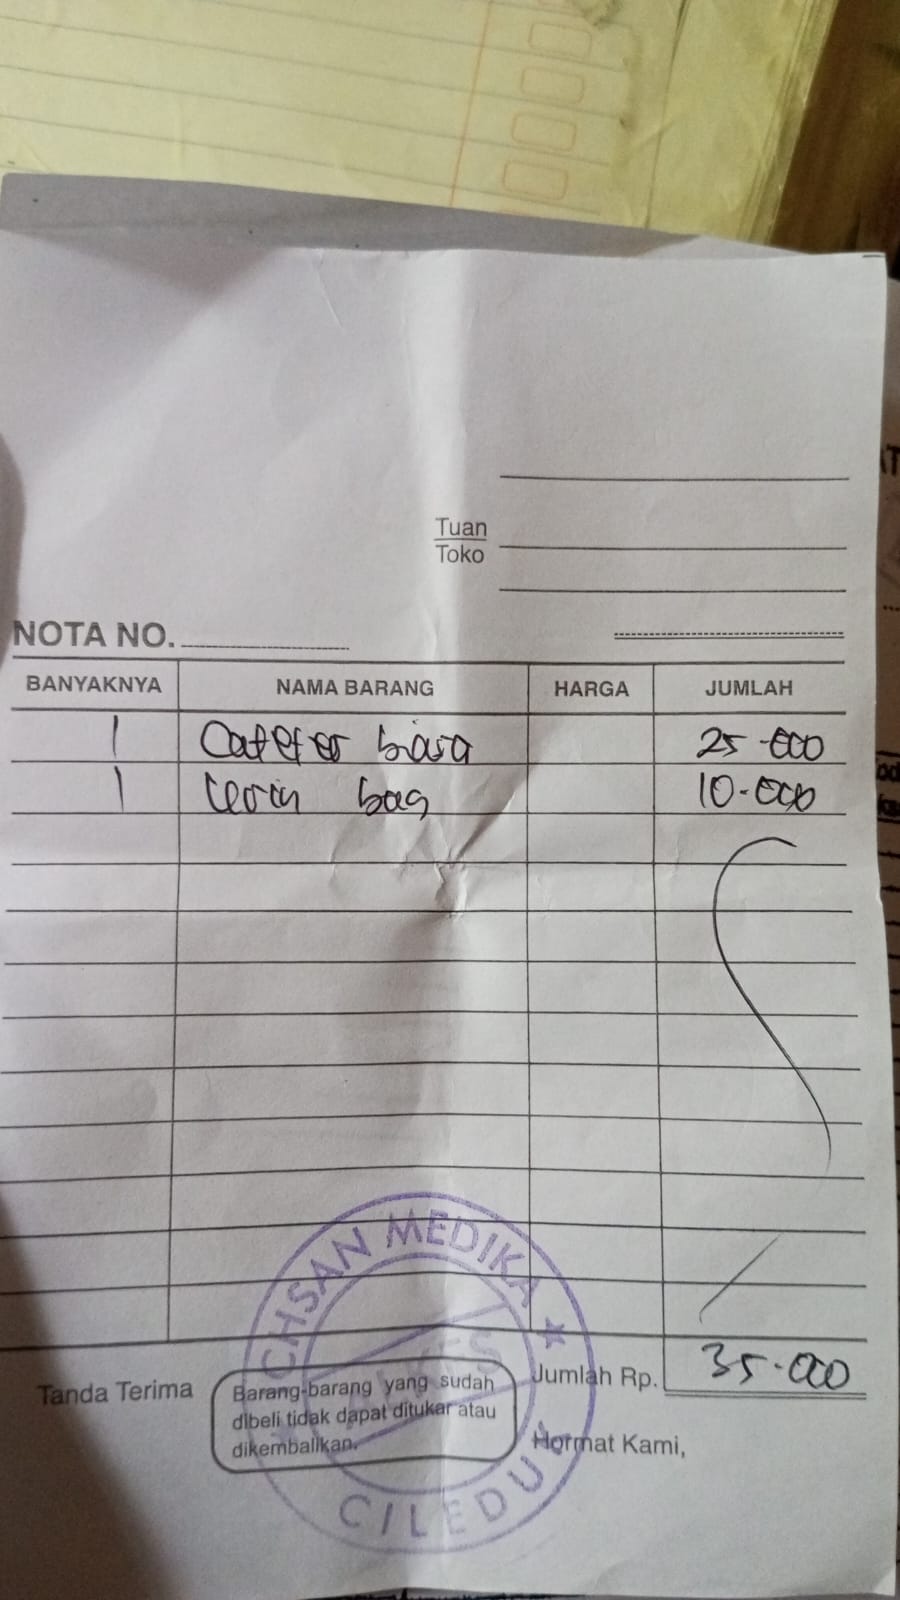 Tuan
Toko
NOTA NO.
BANYAKNYA NAMA BARANG HARGA JUMLAH
1 Cateter biasa 25.000
1 bag 10.000
CHSAN MEDIKA
Jumlah Rp. 35.000
Tanda Terima
Barang-barang yang sudah
dibeli tidak dapat ditukar atau
dikembalikan.
Hormat Kami,
CILEDUK